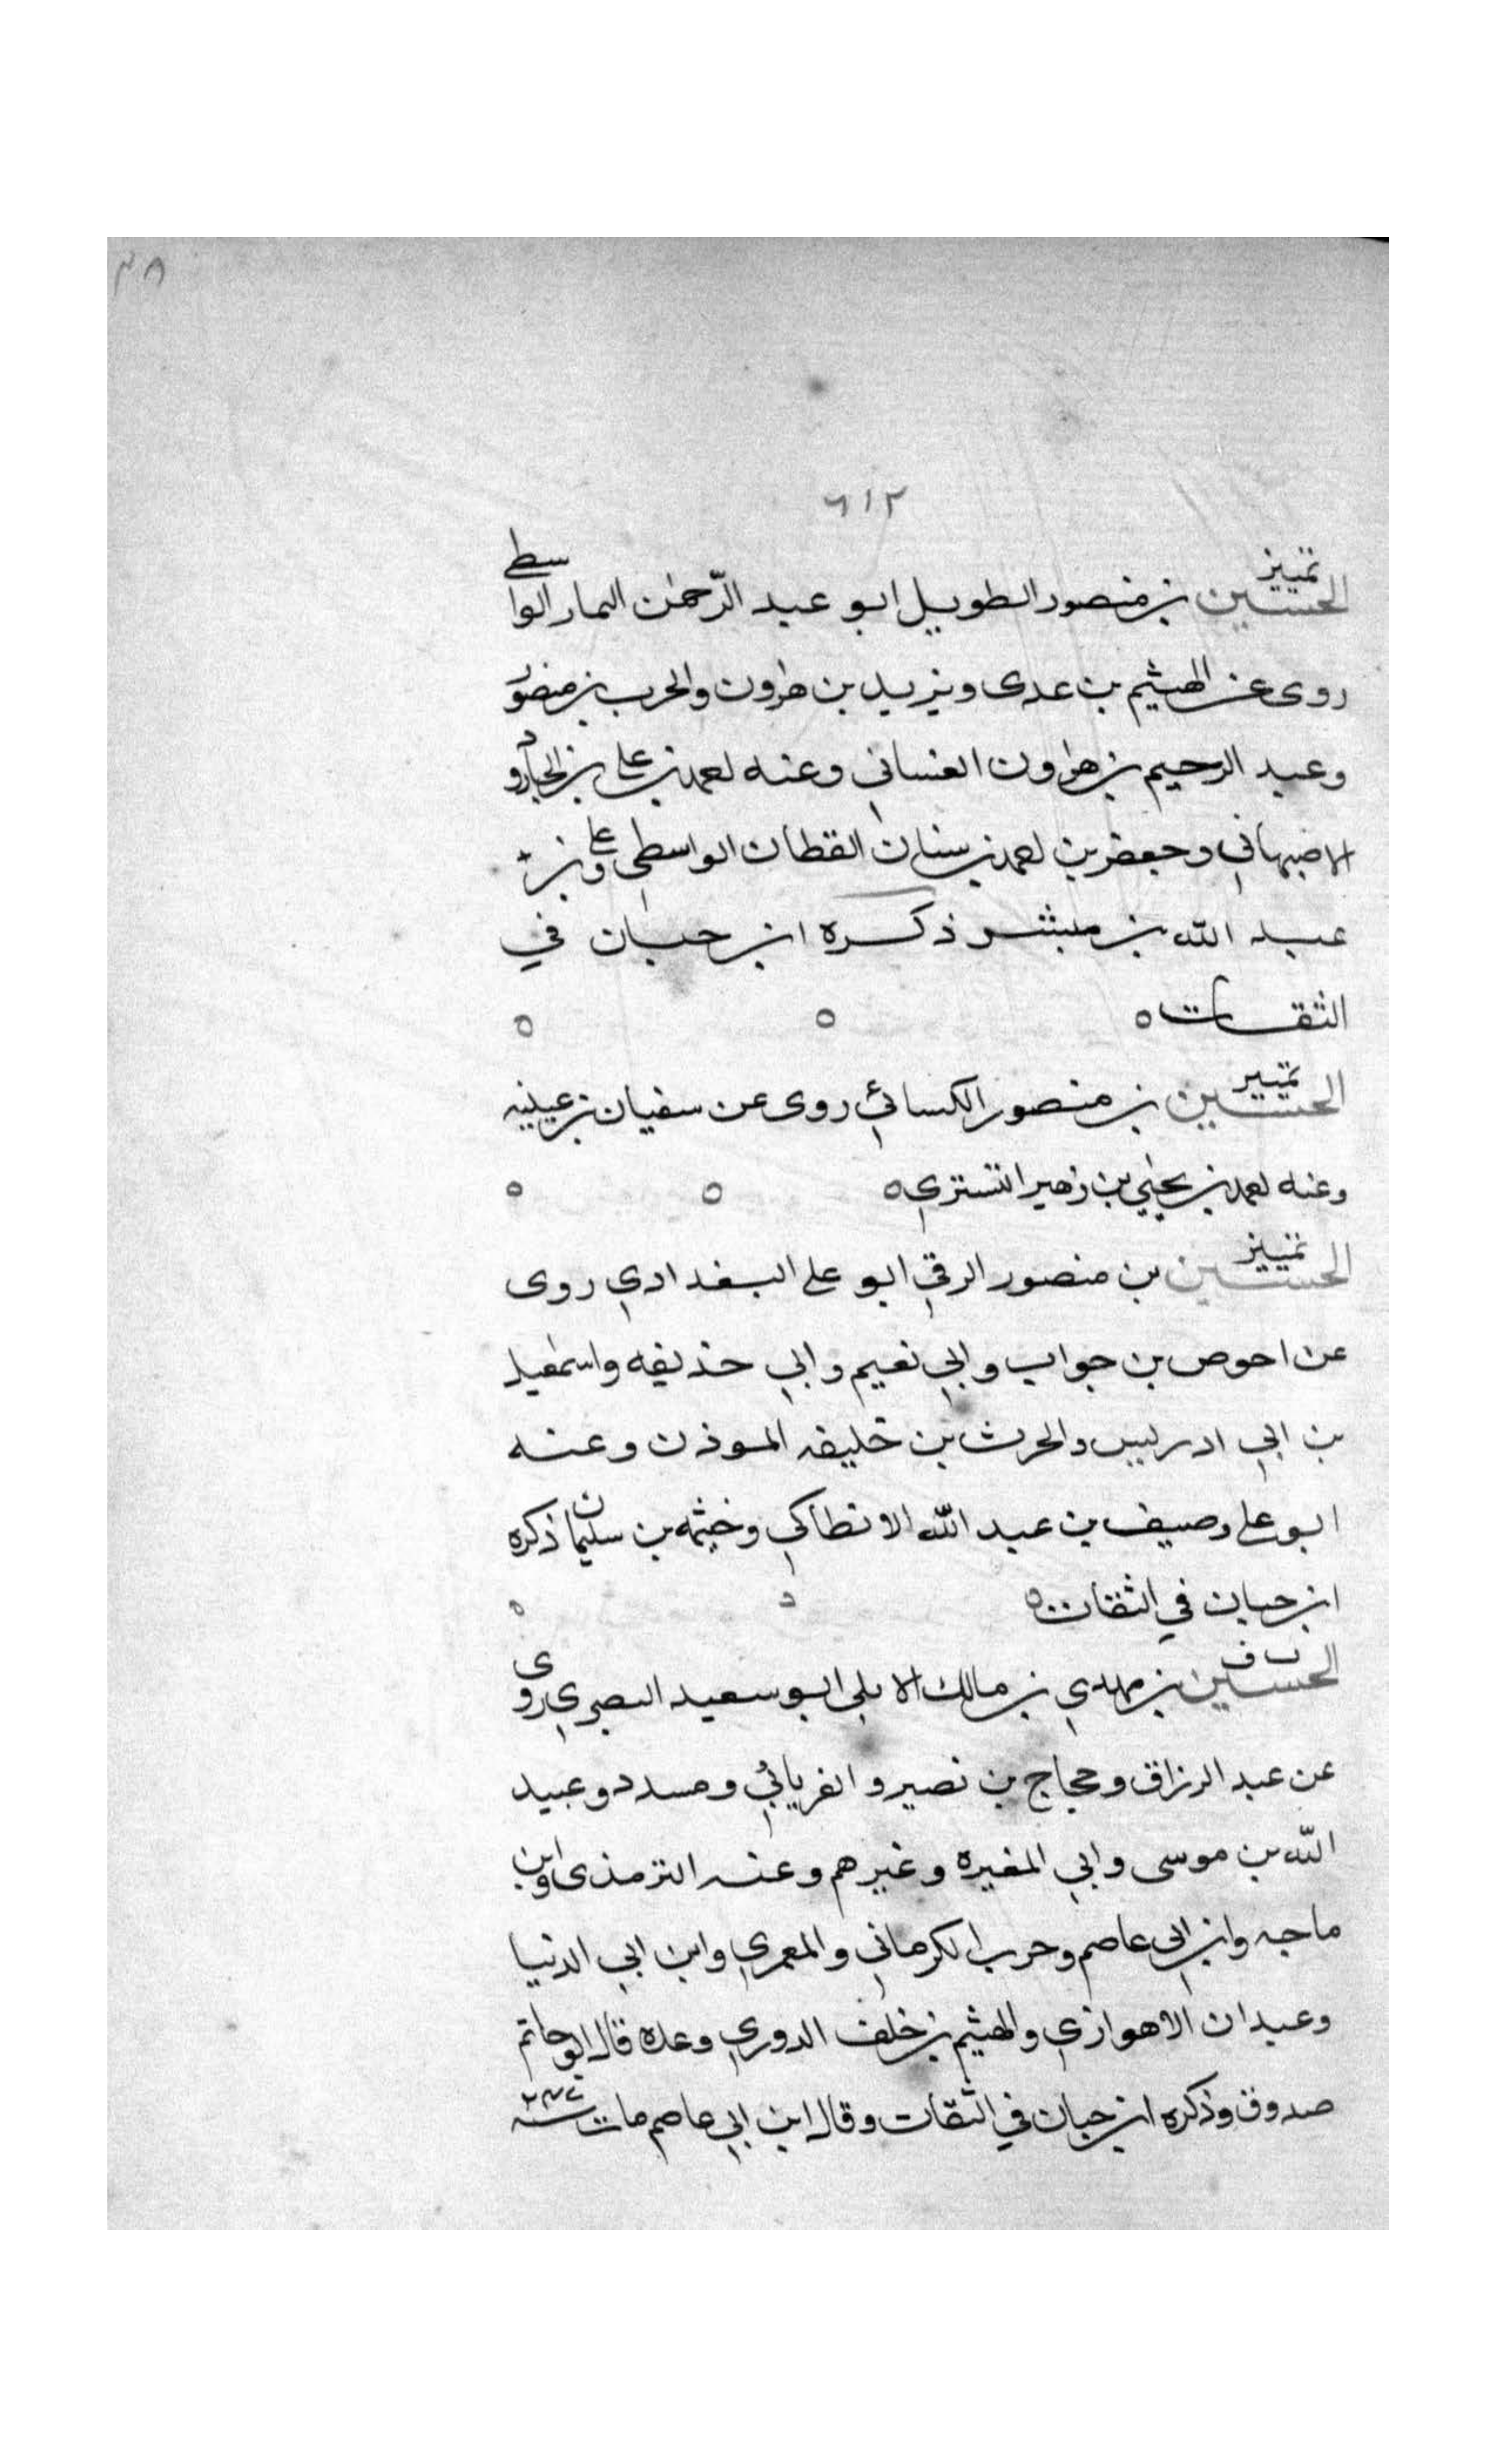 ٣٨
٦١٢
تمييز
الحسين بن منصور الطويل ابو عبد الرّحمٰن التمار الواسطي
روى عن الهيثم بن عدى ويزيد بن هٰرون والحرب بن منصور
وعبد الرحيم بن هٰرون الغساني وعنه محمد بن علي بن الجارود
الاصبهاني وجعفر بن محمد بن سنان القطان الواسطي وعلي بن
عبد الله بن مبشر ذكره ابن حبان في
الثقات ٥ ٥ ٥
تمييز
الحسين بن منصور الكسائي روى عن سفيان بن عيينه
وعنه محمد بن يحيٰي بن زهير التستري ٥ ٥ ٥
تمييز
الحسين بن منصور الرقي ابو علي البغدادي روى
عن احوص بن جواب وابي نعيم وابي حذيفه واسمٰعيل
بن ابي ادريس والحرث بن خليفه الموذن وعنه
ابو علي وصيف بن عبد الله الانطاكي وخيثمه بن سليمان ذكره
ابن حبان في الثقات ٥ ٥ ٥
ت ق
الحسين بن مهدي بن مالك الابلي ابو سعيد البصري روى
عن عبد الرزاق وحجاج بن نصير والفريابي ومسدد وعبيد
الله بن موسى وابي المغيره وغيرهم وعنه الترمذى وابن
ماجه وابن ابي عاصم وحرب الكرماني والمعمري وابن ابي الدنيا
وعبدان الاهوازي والهيثم بن خلف الدوري وعده قال ابو حاتم
صدوق وذكره ابن حبان في الثقات وقال ابن ابي عاصم مات سنة